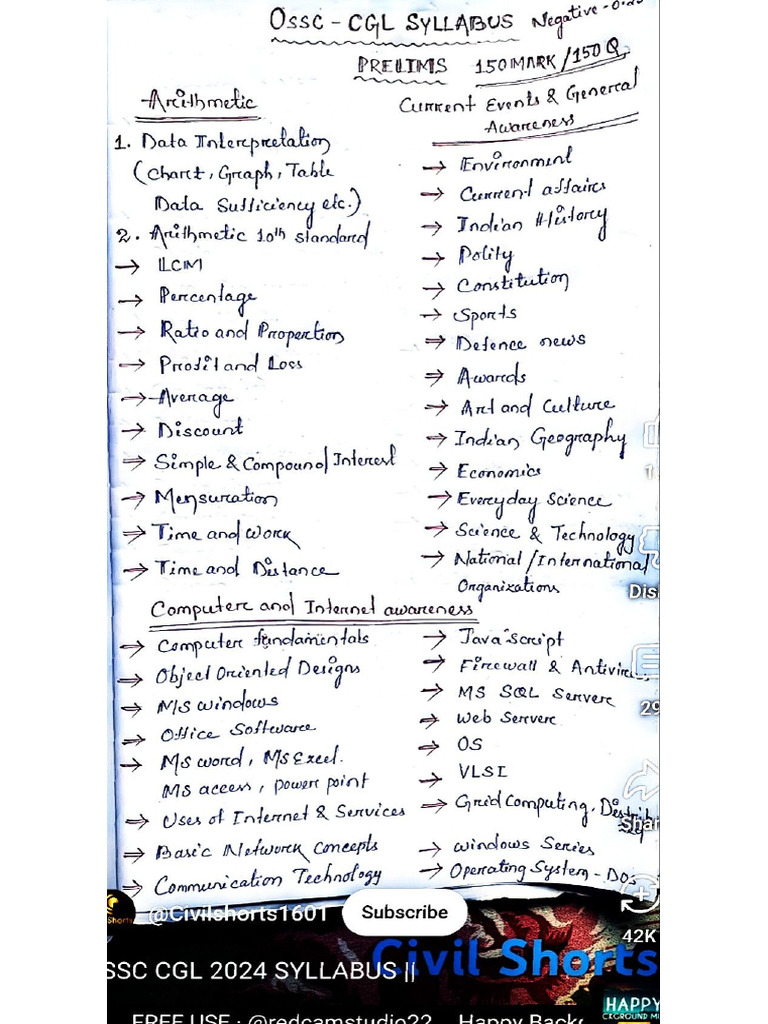 OSSC - CGL SYLLABUS Negative - 0.25
PRELIMS 150 MARK / 150 Q
Arithmetic
1. Data Interpretation
(Chart, Graph, Table
Data Sufficiency etc.)
2. Arithmetic 10th standard
→ LCM
→ Percentage
→ Ratio and Proportion
→ Profit and Loss
→ Average
→ Discount
→ Simple & Compound Interest
→ Mensuration
→ Time and Work
→ Time and Distance
Current Events & General
Awareness
→ Environment
→ Current affairs
→ Indian History
→ Polity
→ Constitution
→ Sports
→ Defence news
→ Awards
→ Art and Culture
→ Indian Geography
→ Economics
→ Everyday Science
→ Science & Technology
→ National / International
Organizations
Computer and Internet awareness
→ Computer fundamentals
→ Object Oriented Designs
→ MS windows
→ Office Software
→ MS word, MS Excel.
MS access, power point
→ Uses of Internet & Services
→ Basic Network Concepts
→ Communication Technology
→ Java Script
→ Firewall & Antivirus
→ MS SQL Server
→ Web Server
→ OS
→ VLSI
→ Grid Computing,
→ windows Series
→ Operating System - DOS
Dis
29
Shar
42K
@Civilshorts1601 Subscribe
Civil Shorts
SSC CGL 2024 SYLLABUS ||
HAPPY
FREE USE : @redcamstudio22 Happy Back